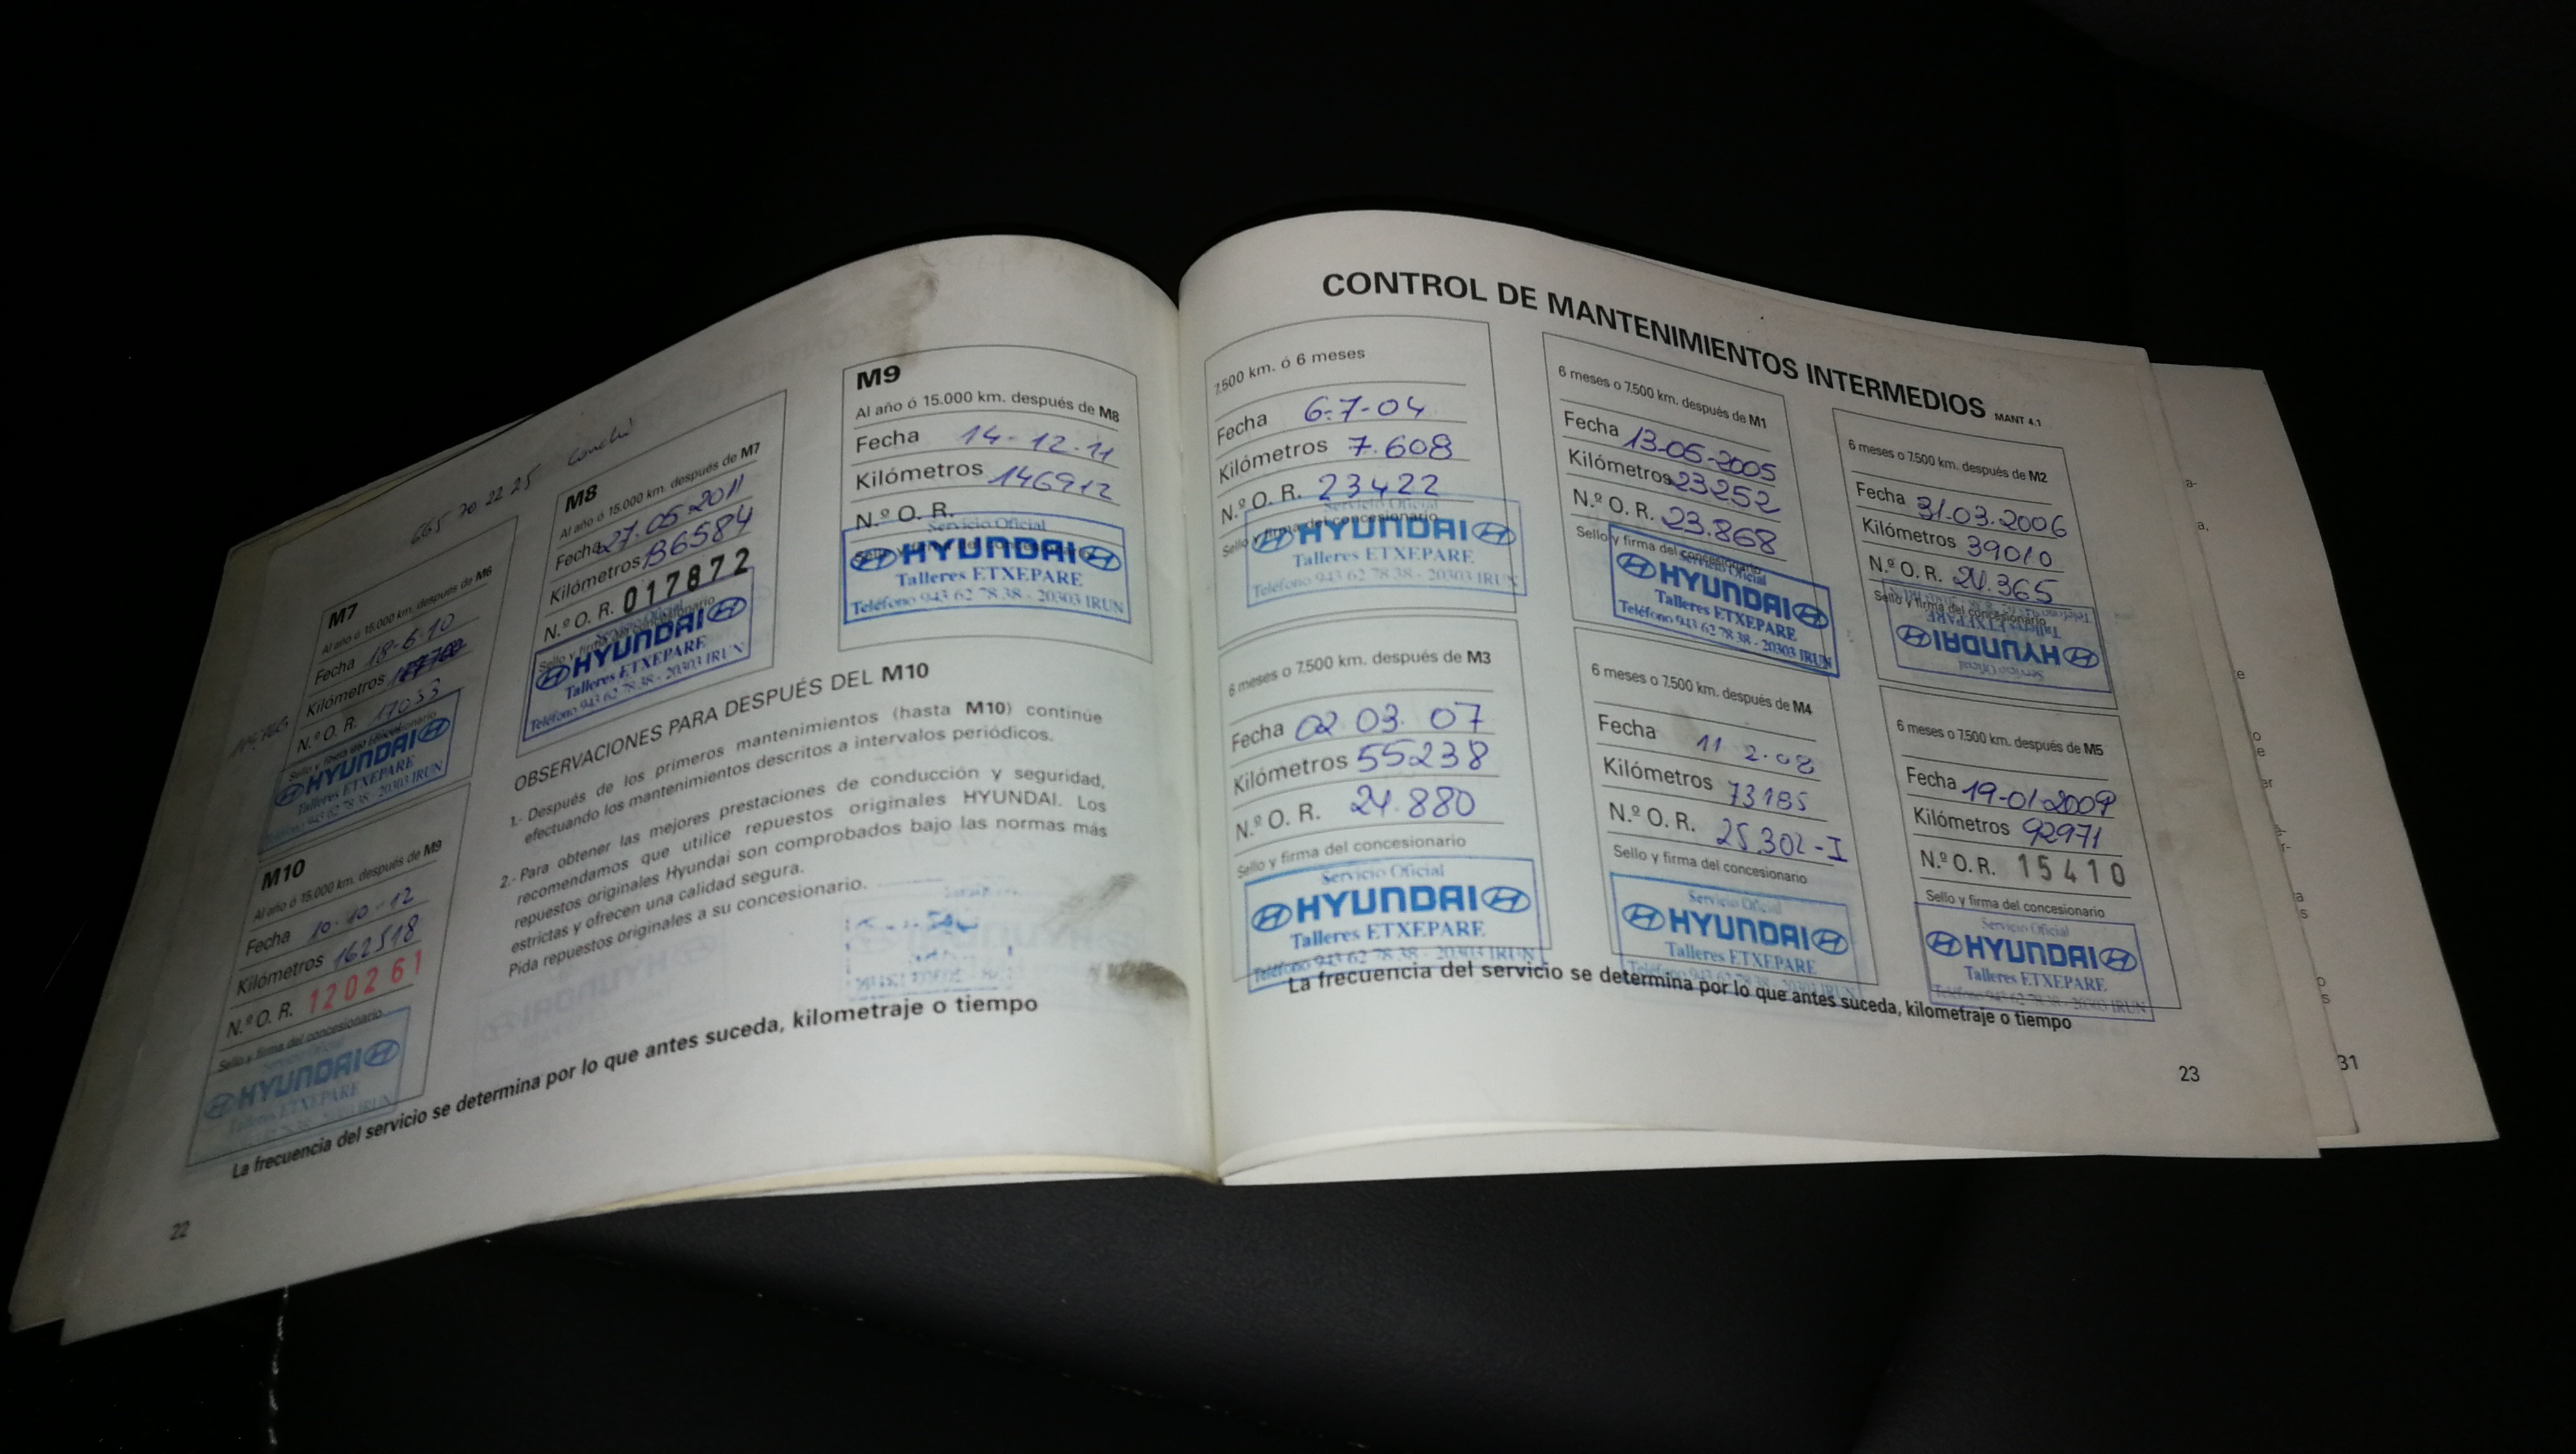 665 70 22 25 Conchi
M7
Al año ó 15.000 km. después de M6
Fecha 18-6-10
Kilómetros
N.º O. R. 17033
Sello y firma del concesionario
HYUNDAI
Talleres ETXEPARE
Teléfono 943 62 78 38 - 20303 IRUN
M8
Al año ó 15.000 km. después de M7
Fecha 27.05.2011
Kilómetros 136584
N.º O. R. 017872
Sello y firma del concesionario
Servicio Oficial
HYUNDAI
Talleres ETXEPARE
Teléfono 943 62 78 38 - 20303 IRUN
M9
Al año ó 15.000 km. después de M8
Fecha 14-12-11
Kilómetros 146912
N.º O. R.
Servicio Oficial
HYUNDAI
Talleres ETXEPARE
Teléfono 943 62 78 38 - 20303 IRUN
M10
Al año ó 15.000 km. después de M9
Fecha 10-10-12
Kilómetros 162518
N.º O. R. 120261
Sello y firma del concesionario
Servicio Oficial
HYUNDAI
Talleres ETXEPARE
OBSERVACIONES PARA DESPUÉS DEL M10
1.- Después de los primeros mantenimientos (hasta M10) continúe
efectuando los mantenimientos descritos a intervalos periódicos.
2.- Para obtener las mejores prestaciones de conducción y seguridad,
recomendamos que utilice repuestos originales HYUNDAI. Los
repuestos originales Hyundai son comprobados bajo las normas más
estrictas y ofrecen una calidad segura.
Pida repuestos originales a su concesionario.
La frecuencia del servicio se determina por lo que antes suceda, kilometraje o tiempo
22
CONTROL DE MANTENIMIENTOS INTERMEDIOS MANT 4.1
7.500 km. ó 6 meses
Fecha 6-7-04
Kilómetros 7.608
N.º O. R. 23422
Sello y firma del concesionario
Servicio Oficial
HYUNDAI
Talleres ETXEPARE
Teléfono 943 62 78 38 - 20303 IRUN
6 meses o 7.500 km. después de M1
Fecha 13-05-2005
Kilómetros 23252
N.º O. R. 23.868
Sello y firma del concesionario
Servicio Oficial
HYUNDAI
Talleres ETXEPARE
Teléfono 943 62 78 38 - 20303 IRUN
6 meses o 7.500 km. después de M2
Fecha 31.03.2006
Kilómetros 39010
N.º O. R. 24.365
Sello y firma del concesionario
Servicio Oficial
HYUNDAI
Talleres ETXEPARE
6 meses o 7.500 km. después de M3
Fecha 02 03. 07
Kilómetros 55238
N.º O. R. 24.880
Sello y firma del concesionario
Servicio Oficial
HYUNDAI
Talleres ETXEPARE
Teléfono 943 62 78 38 - 20303 IRUN
6 meses o 7.500 km. después de M4
Fecha 11 2.08
Kilómetros 73185
N.º O. R. 25.302-I
Sello y firma del concesionario
Servicio Oficial
HYUNDAI
Talleres ETXEPARE
6 meses o 7.500 km. después de M5
Fecha 19-01-2009
Kilómetros 92971
N.º O. R. 15410
Sello y firma del concesionario
Servicio Oficial
HYUNDAI
Talleres ETXEPARE
Teléfono 943 62 78 38 - 20303 IRUN
La frecuencia del servicio se determina por lo que antes suceda, kilometraje o tiempo
23
31